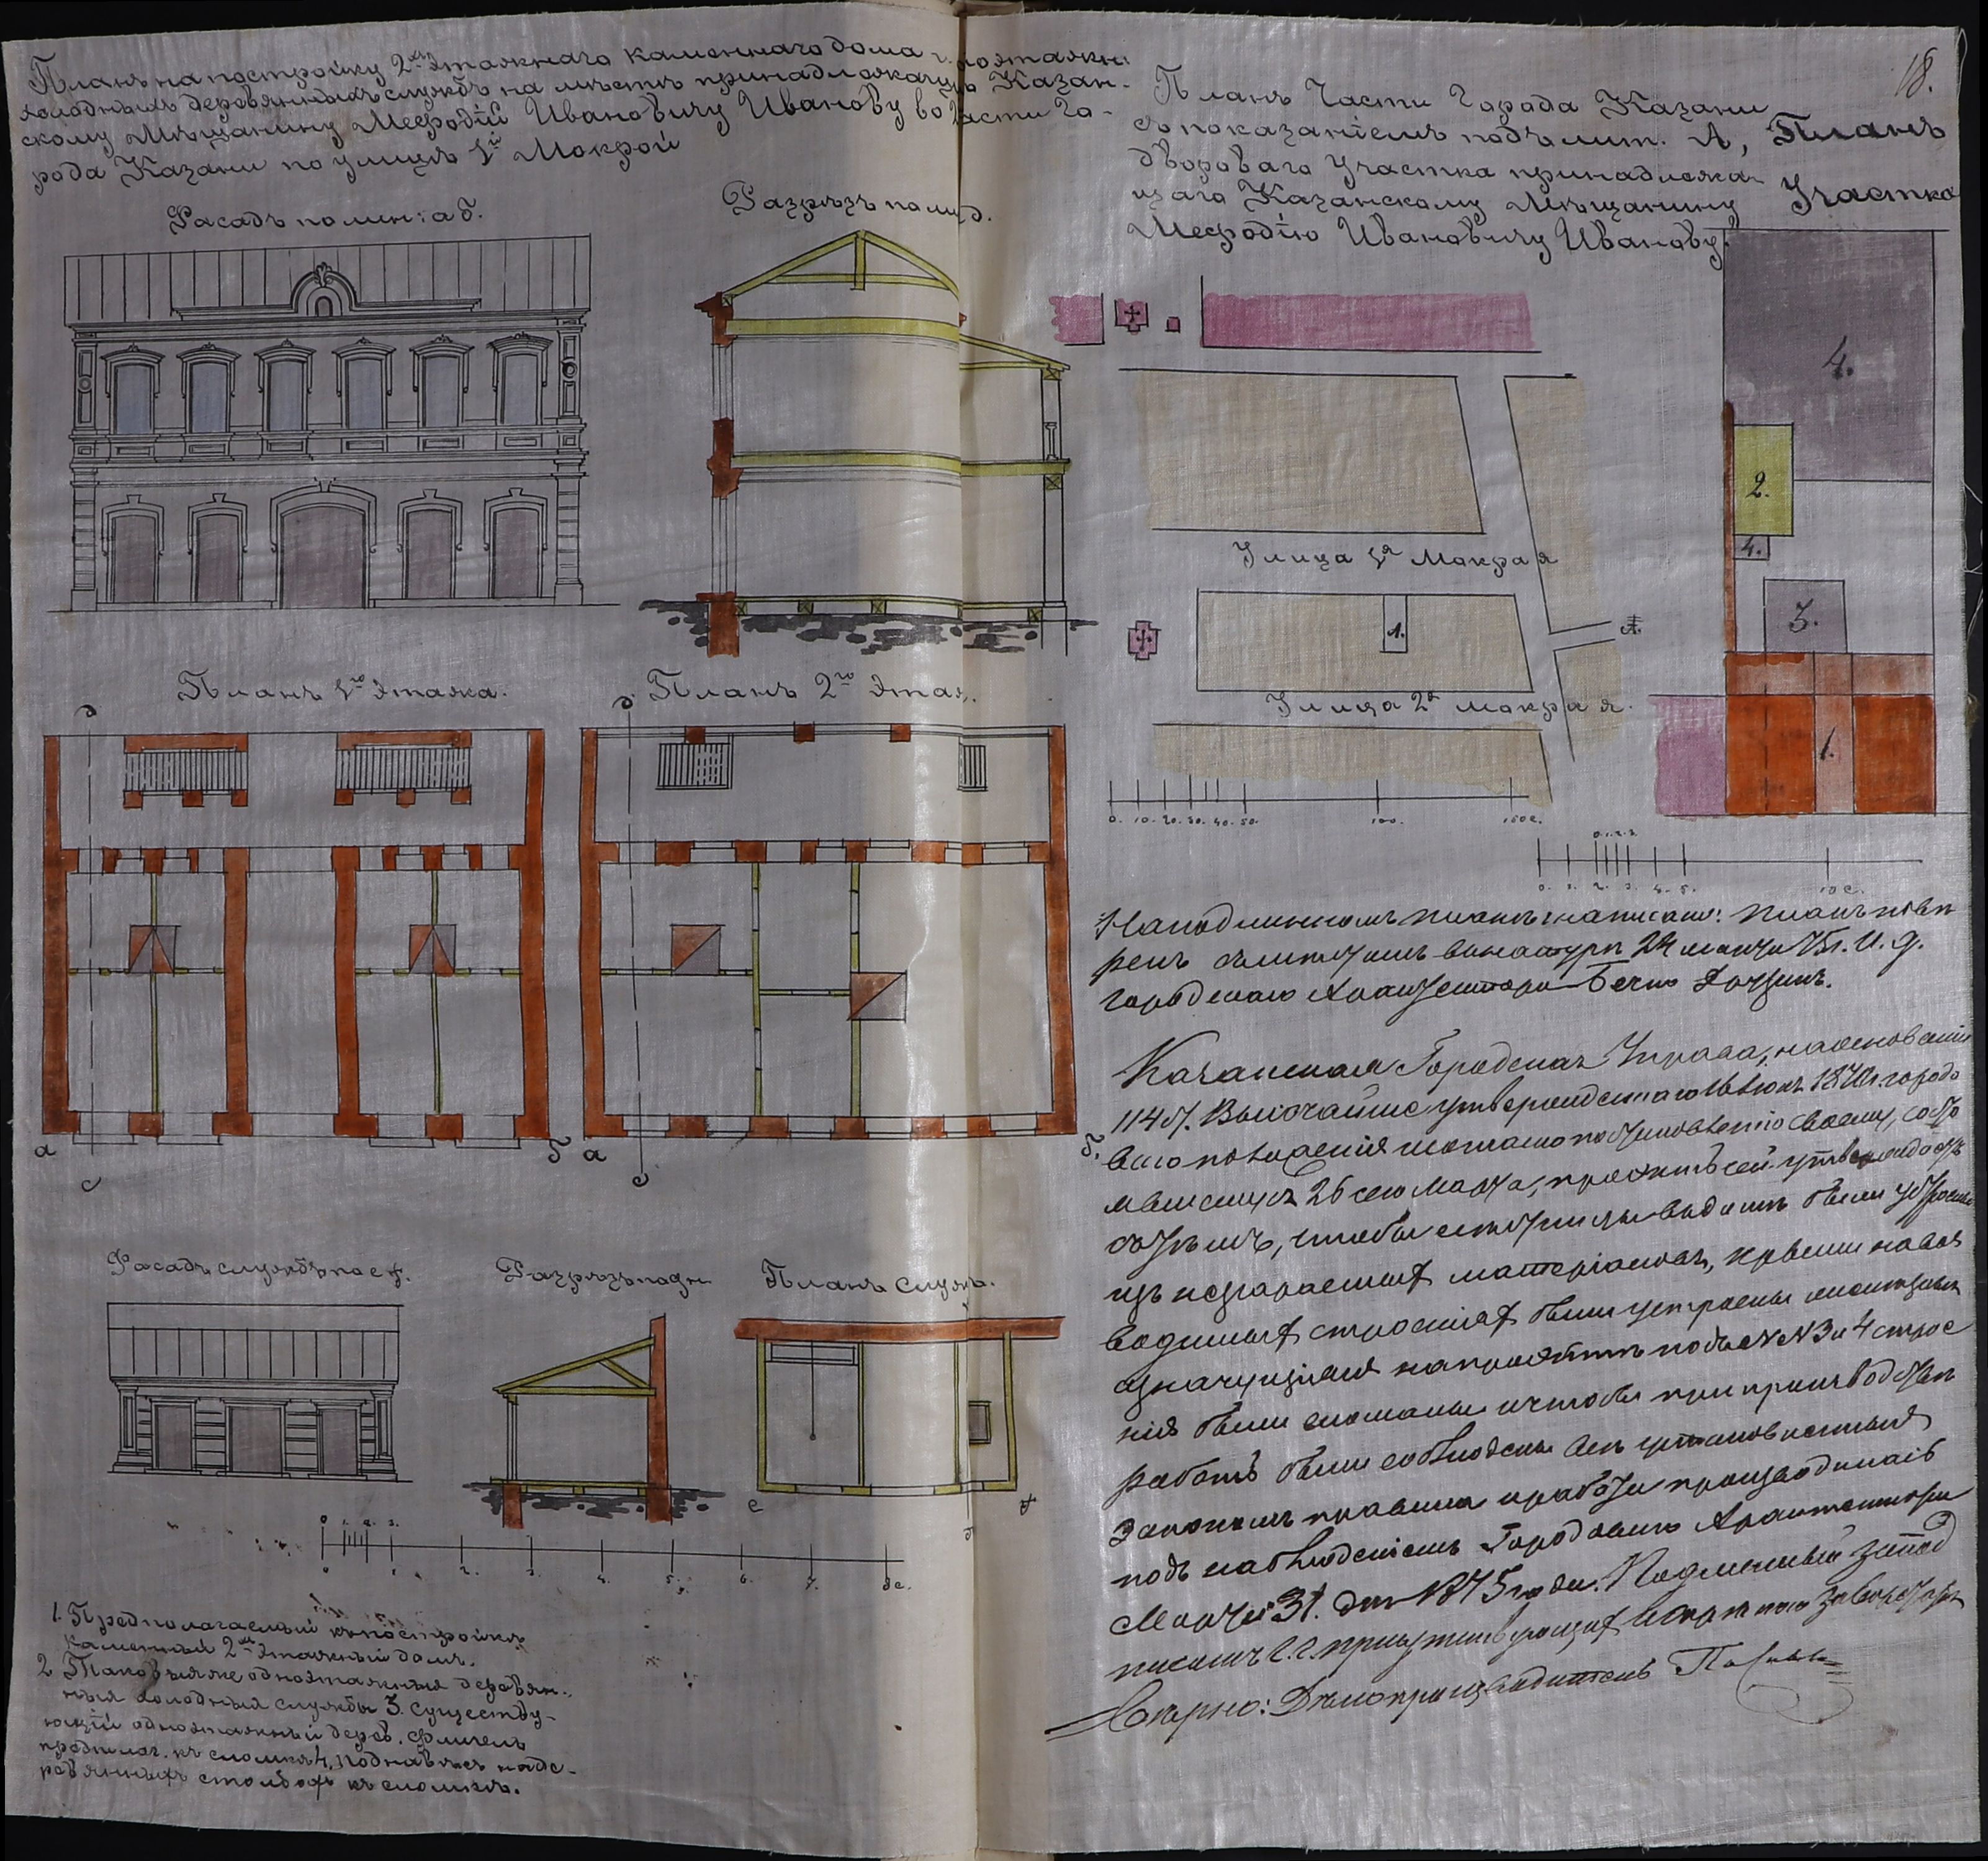 Планъ на постройку 2хъ этажнаго каменнаго дома и одноэтажн.
холодныхъ деревянныхъ службъ на мѣстѣ принадлежащемъ Казан-
скому Мѣщанину Меѳодію Ивановичу Иванову во 2 части го-
рода Казани по улицѣ 1й Мокрой
Фасадъ по лин: а б.
Разрѣзъ по ли д.
Планъ 1го этажа.
Планъ 2го этаж.
д
д
а
б
а
б.
с
с
Фасадъ службъ по е f.
Разрѣзъ по дн
Планъ служ.
е
f
0 1. 2. 3.
1. 2. 3. 4. 5. 6. 7. 8 с.
1. Предполагаемый къ постройкѣ
каменный 2хъ этажный домъ.
2 Таковыя же одноэтажныя деревян-
ныя холодныя службы 3. Существу-
ющій одноэтажный дерев. флигель
предполаг. къ сломкѣ 4. Поднавѣсъ на де-
ревянныхъ столбахъ къ сломкѣ.
18.
Планъ Части Города Казани
съ показаніемъ подъ лит. А,
двороваго участка принадлежа-
щаго Казанскому Мѣщанину
Меѳодію Ивановичу Иванову.
Планъ
Участка
4.
2.
4.
3.
1.
Улица 1я Мокрая
А.
Улица 2я Мокрая.
0. 10. 20. 30. 40. 50. 100. 150 с.
0. 1. 2. 3.
0. 1. 2. 3. 4. 5. 10 с.
На подлинномъ планѣ написано: планъ повѣ
ренъ съ мѣстомъ въ натурѣ 24 марта 75 г. И. д.
городскаго Архитектора Бечко Друзинъ.
Казанская Городская Управа, на основаніи
114 ст. Высочайше утвержденнаго 16 Іюня 1870 г. городо
ваго положенія и согласно постановленію своему, состо
явшемуся 26 сего Марта, проэктъ сей утверждаетъ
съ тѣмъ, чтобы лѣстницы въ домѣ были устроены
изъ несгараемыхъ матеріаловъ, крыши на воз
водимыхъ строеніяхъ были устроены
значущіяся на проэктѣ подъ №№ 3 и 4 строе
нія были сломаны и чтобы при производствѣ
работъ были соблюдены всѣ установленныя
закономъ правила и работы производились
подъ наблюденіемъ Городскаго Архитектора
Марта 31. дня 1875 года. Подлинный за под
писомъ г.г. присутствующихъ и скрѣпою за Секретаря
Вѣрно: Дѣлопроизводитель